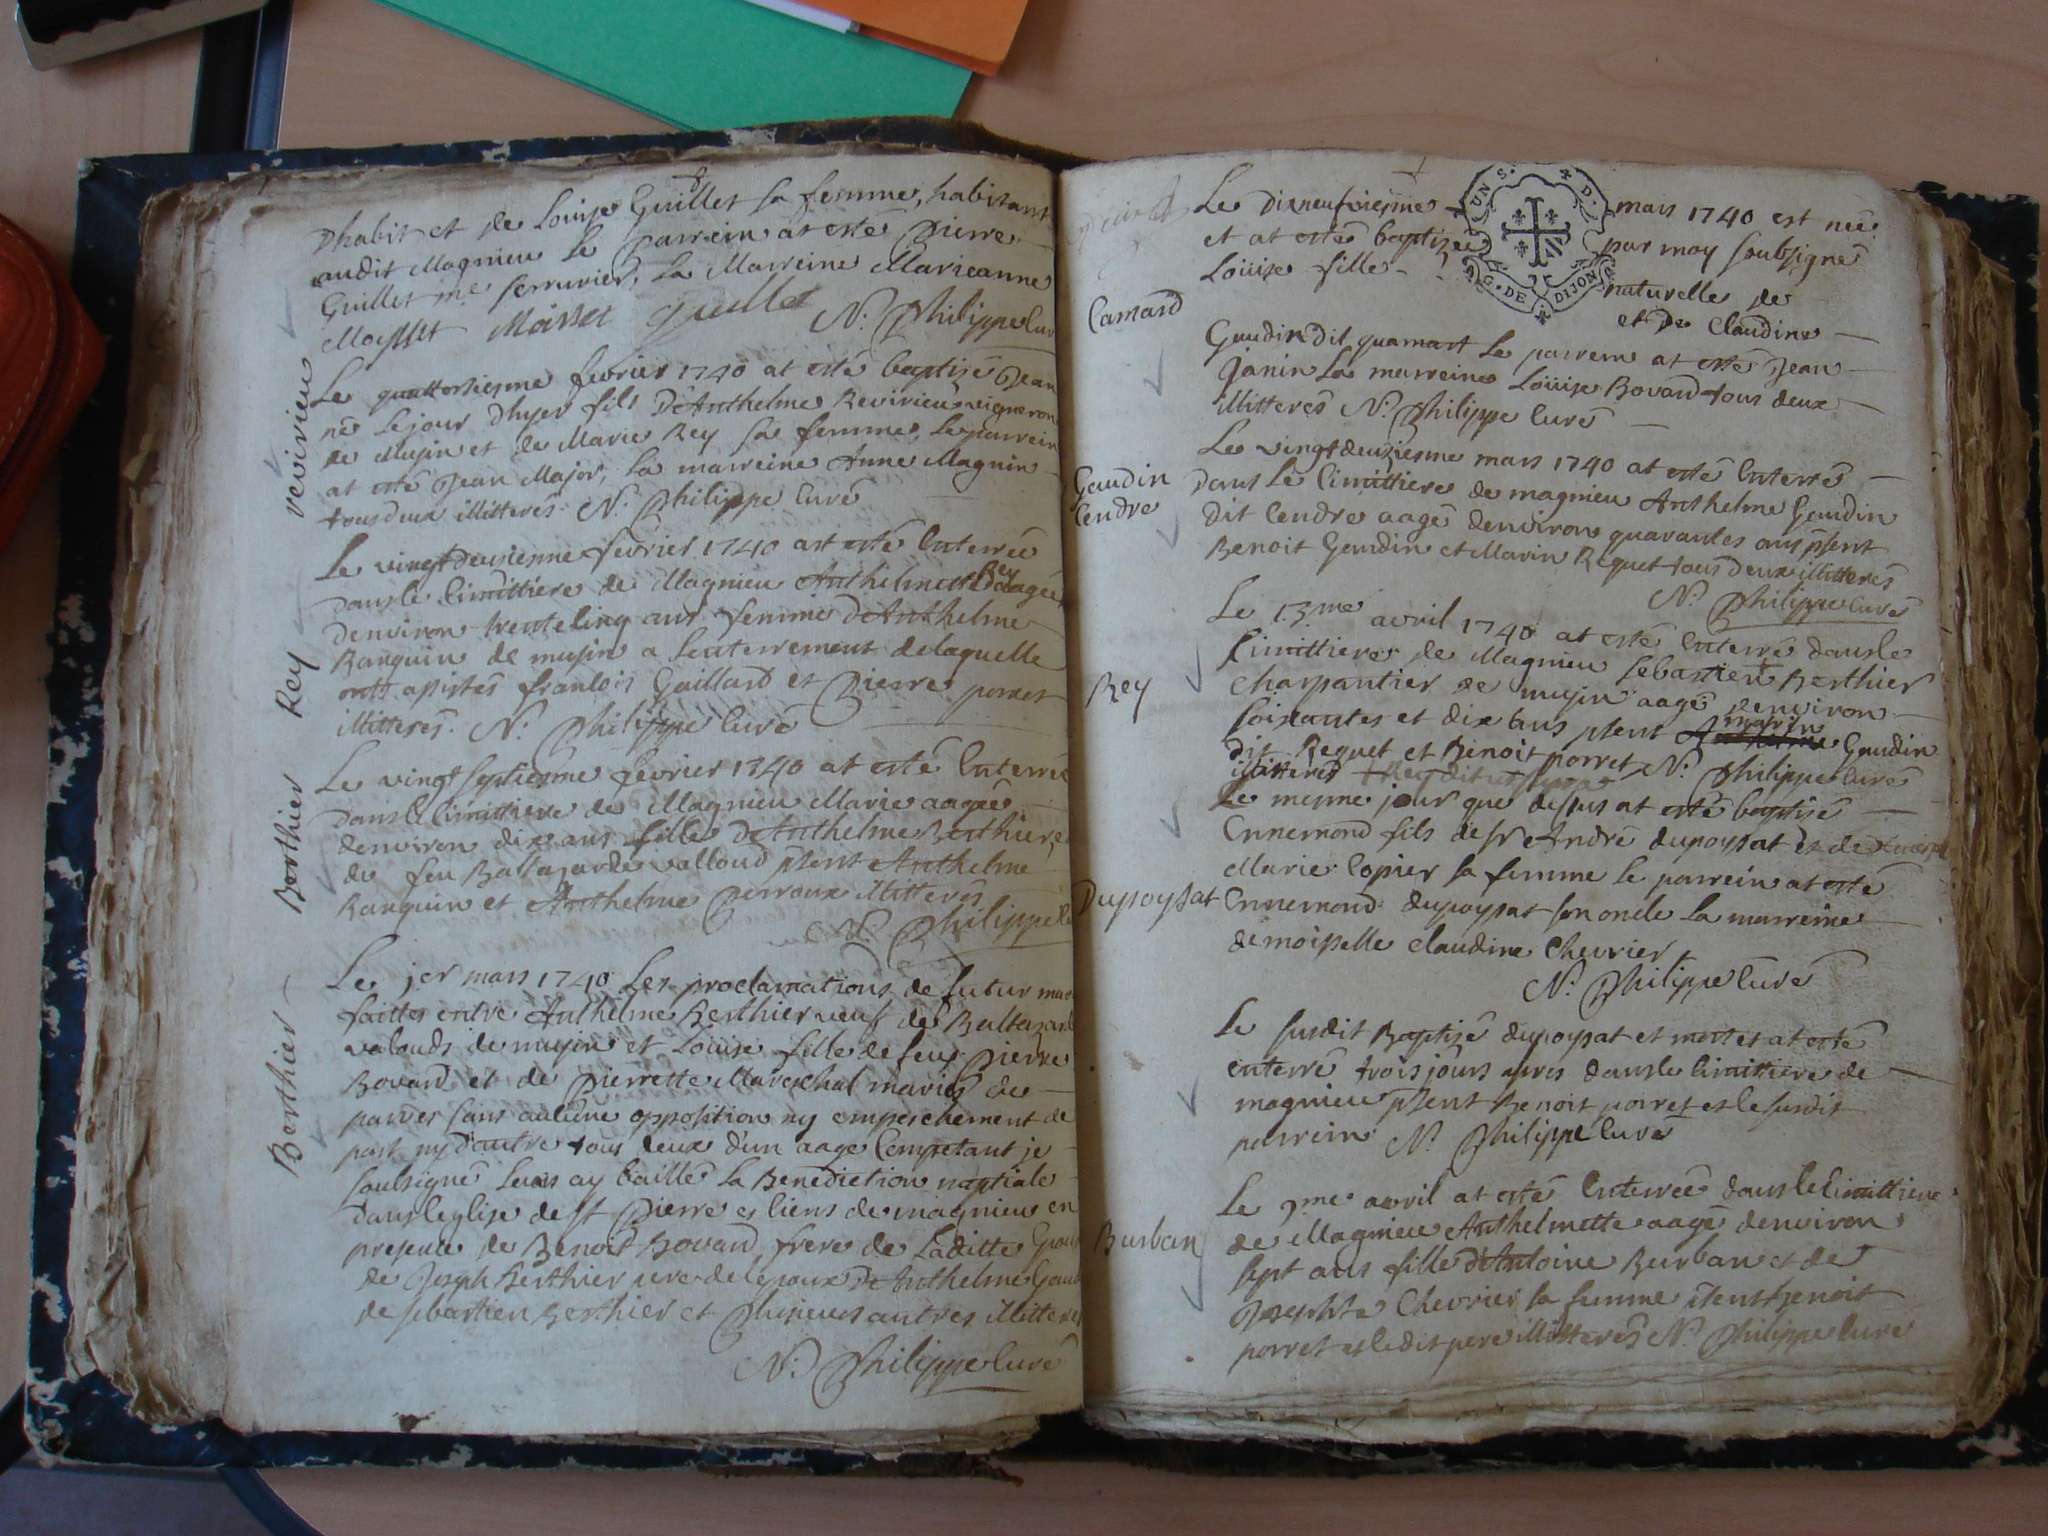 Dhabit et de Louise Guillet sa femme, habitant
audit Magnieu le parrein at esté Pierre
Guillet me serrurier, la Marreine Marieanne
Moysset Moisset guillet N. Philippe Cur
Reveirieu
Le quattorsiesme fevrier 1740 at esté baptisé Jean
né le jour Dhyer fils D'Anthelme Revirieu vigneron
de Musin et de Marie Rey sa femme, le parrein
at esté Jean Major, la marreine Anne Magnin
tous deux illitterés N. Philippe Curé
Rey
Le vingtdeusiesme fevrier 1740 at esté Enterrée
dans le Cimittiere de Magnieu Anthelmette Rey aagée
denviron trente Cinq ans femme D'Anthelme
Ranquin de musin a lenterrement delaquelle
ont assistés francois Gaillard et Pierre porret
illitterés. N. Philippe Curé
Berthier
Le vingtseptiesme fevrier 1740 at esté Enterrée
dans le Cimittiere de Magnieu Marie aagée
denviron dix ans fille D'Anthelme Berthier et
de feu Baltazarde valloud psent Anthelme
Ranquin et Anthelme Perroux illitterés
N. Philippe
Berthier
Le jer mars 1740 les proclamations de futur mar
faittes entre Anthelme Berthier veuf de Baltazarde
valouds de musin et Louise fille de feu Pierre
Bovard et de Pierrette Mareschal mariés de
parres sans aulcune opposition ny empeschement de
part ny d'autre tous deux d'un aage Competant je
soubsigné leurs ay baillé la Benediction nuptiale
dans leglise de st Pierre es liens de magnieu en
presence de Benoit Bovard frere de Laditte
de Joseph Berthier pere de lepoux D'Anthelme Gaud
de sebastien Berthier et Plusieurs autres illitterés
N. Philippe Curé
Le Dixneufviesme mars 1740 est née
et at estée baptizée par moy soubsigné
Louise fille naturelle de
et de Claudine
UN S. D.
G. DE DIJON
Camard
Gaudin dit quamart le parrein at esté Jean
Janin la marreine Louise Bovard tous deux
illitterés N. Philippe Curé
Gaudin
Cendre
Le vingtdeuziesme mars 1740 at esté Enterré
dans le Cimittiere de magnieu Anthelme Gaudin
dit Cendre aagé denviron quarantes ans psent
Benoit Gaudin et Marin Reguet tous deux illitterés
N. Philippe Curé
Rey
Le 13me avril 1740 at esté Enterré dans le
Cimittiere de Magnieu Sebastien Berthier
Charpantier de musin aagé denviron
soixantes et dix ans psent marin Gaudin
dit Reguet et Benoit porret N. Philippe Curé
illitterés + Rey dit
Dupoysat
Le mesme jour que dessus at esté baptisé
Ennemond fils de sr André dupoysat et de
Marie Copier sa femme le parrein at esté
Ennemond dupoysat son oncle la marreine
demoiselle Claudine Chevrier
N. Philippe Curé
Le susdit Baptizé dupoysat et mort et at esté
enterré trois jours apres dans le Cimittiere de
magnieu psent Benoit porret et le susdit
parrein. N. Philippe Curé
Burban
Le 9me avril at esté Enterrée dans le Cimittiere
de Magnieu Anthelmette aagé denviron
sept ans fille d'Antoine Burban et de
Josephte Chevrier sa femme psent Benoit
porret et ledit pere illitterés N. Philippe Curé